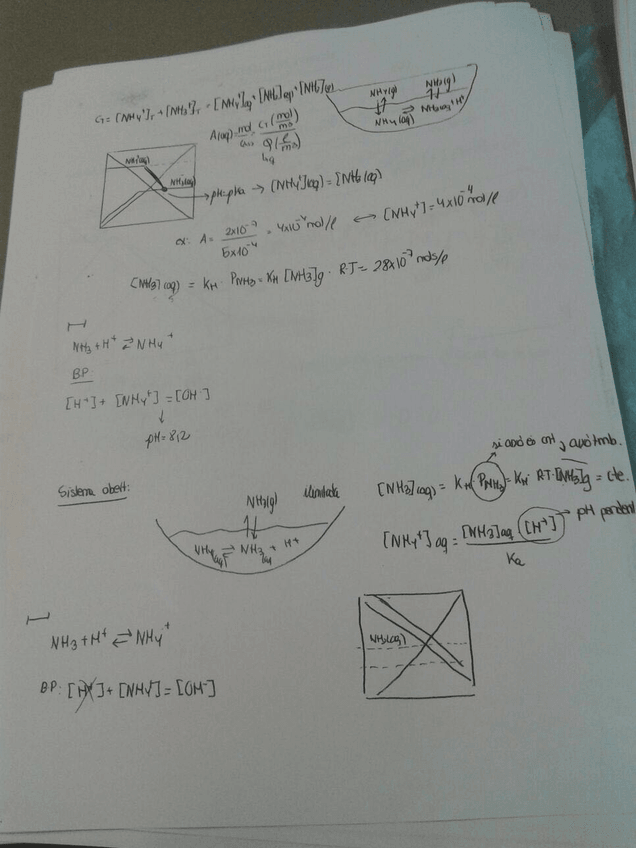 C_T = [NH4+]_T + [NH3]_T = [NH4+]aq + [NH3]aq + [NH3](g)
A(aq) = mol/l aq = C_T (mol/m3) / Q (l/m3)
NH3(g) NH3(g)
NH4(aq) ⇌ NH3(aq) + H+
NH3(g)
NH3(aq)
→ pH=pKa → [NH4+](aq) = [NH3(aq)
ex: A = 2x10^-7 / 5x10^-4 = 4x10^-4 mol/l ⟷ [NH4+] = 4x10^-4 mol/l
[NH3](aq) = K_H · P_NH3 = K_H [NH3]g · R·T = 28x10^-7 mols/l
NH3 + H+ ⇌ NH4+
BP:
[H+] + [NH4+] = [OH-]
↓
pH = 8,2
Sistema obert:
NH3(g)
NH4 aq ⇌ NH3 aq + H+
[NH3](aq) = K_H · P_NH3 = K_H · RT·[NH3]g = cte.
[NH4+]aq = [NH3]aq [H+] / Ka → pH pendent
NH3(aq)
NH3 + H+ ⇌ NH4+
BP: [H+] + [NH4+] = [OH-]